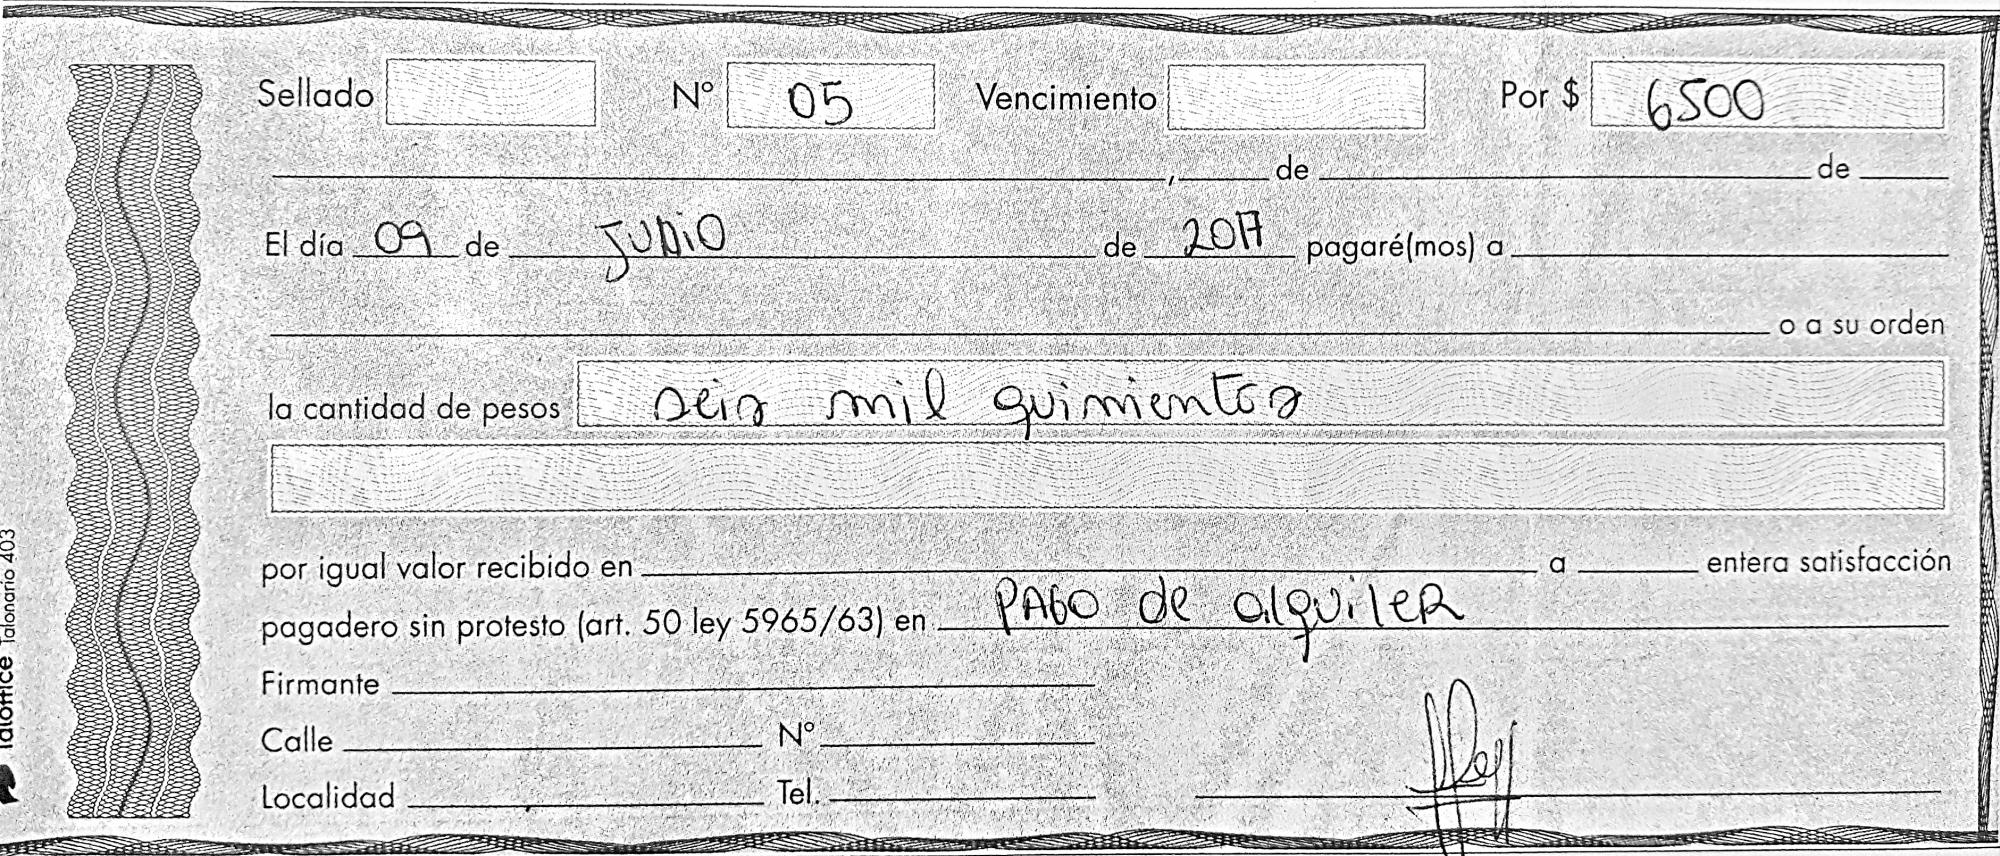 Sellado N° 05 Vencimiento Por $ 6500
, de de
El día 09 de JUNiO de 2017 pagaré(mos) a
o a su orden
la cantidad de pesos seis mil quinientos
por igual valor recibido en a entera satisfacción
pagadero sin protesto (art. 50 ley 5965/63) en PAGO de alquiler
Firmante
Calle N°
Localidad Tel.
Taloffice Talonario 403